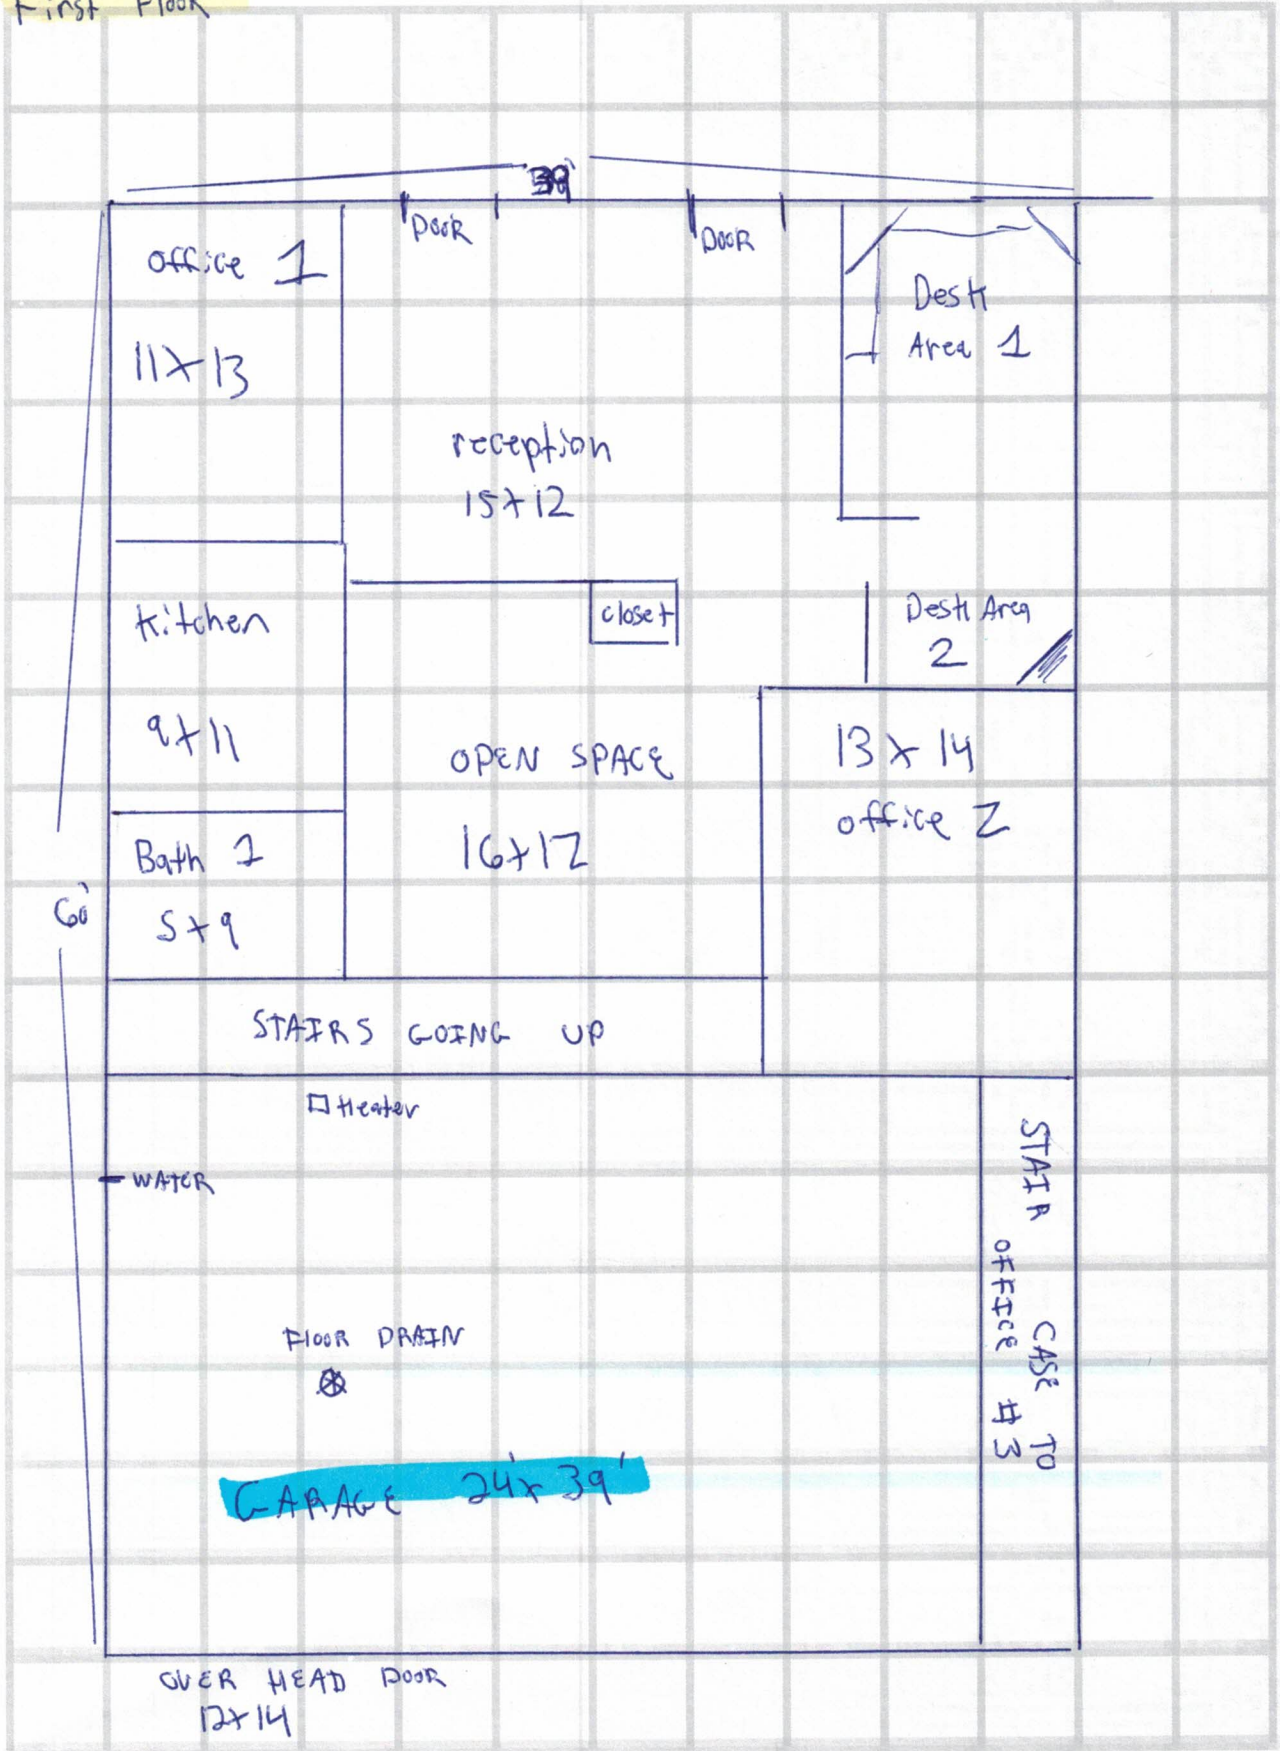 First Floor
39'
Door
Door
office 1
11x13
Desk
Area 1
reception
15x12
Kitchen
9x11
closet
Desk Area
2
OPEN SPACE
16x12
13 x 14
office 2
Bath 1
5x9
60'
STAIRS GOING UP
Heater
WATER
STAIR CASE TO
OFFICE #3
FLOOR DRAIN
GARAGE 24'x 39'
OVER HEAD DOOR
12x14